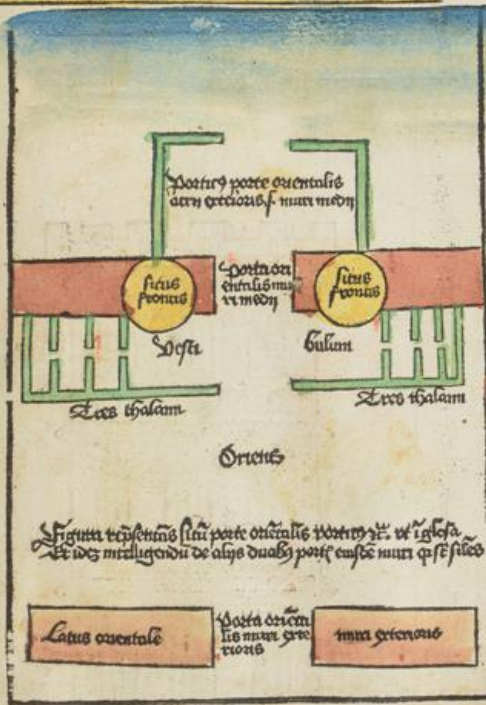 Porticꝰ porte orientalis
atrii exterioris .s. muri medii
situs
frontis
Porta ori
entalis mu
ri medii
situs
frontis
Vesti
bulum
Tres thalami
Tres thalami
Oriens
Figura rep̃sentãs sitũ porte oriẽtalis porticꝰ ꝛc. vt ĩ glosa
Et idez intelligendũ de aliis duabꝰ portis eiusdẽ muri q̃ st̃ siĩles
Latus orientale
Porta oriẽta
lis muri exte
rioris
muri exterioris